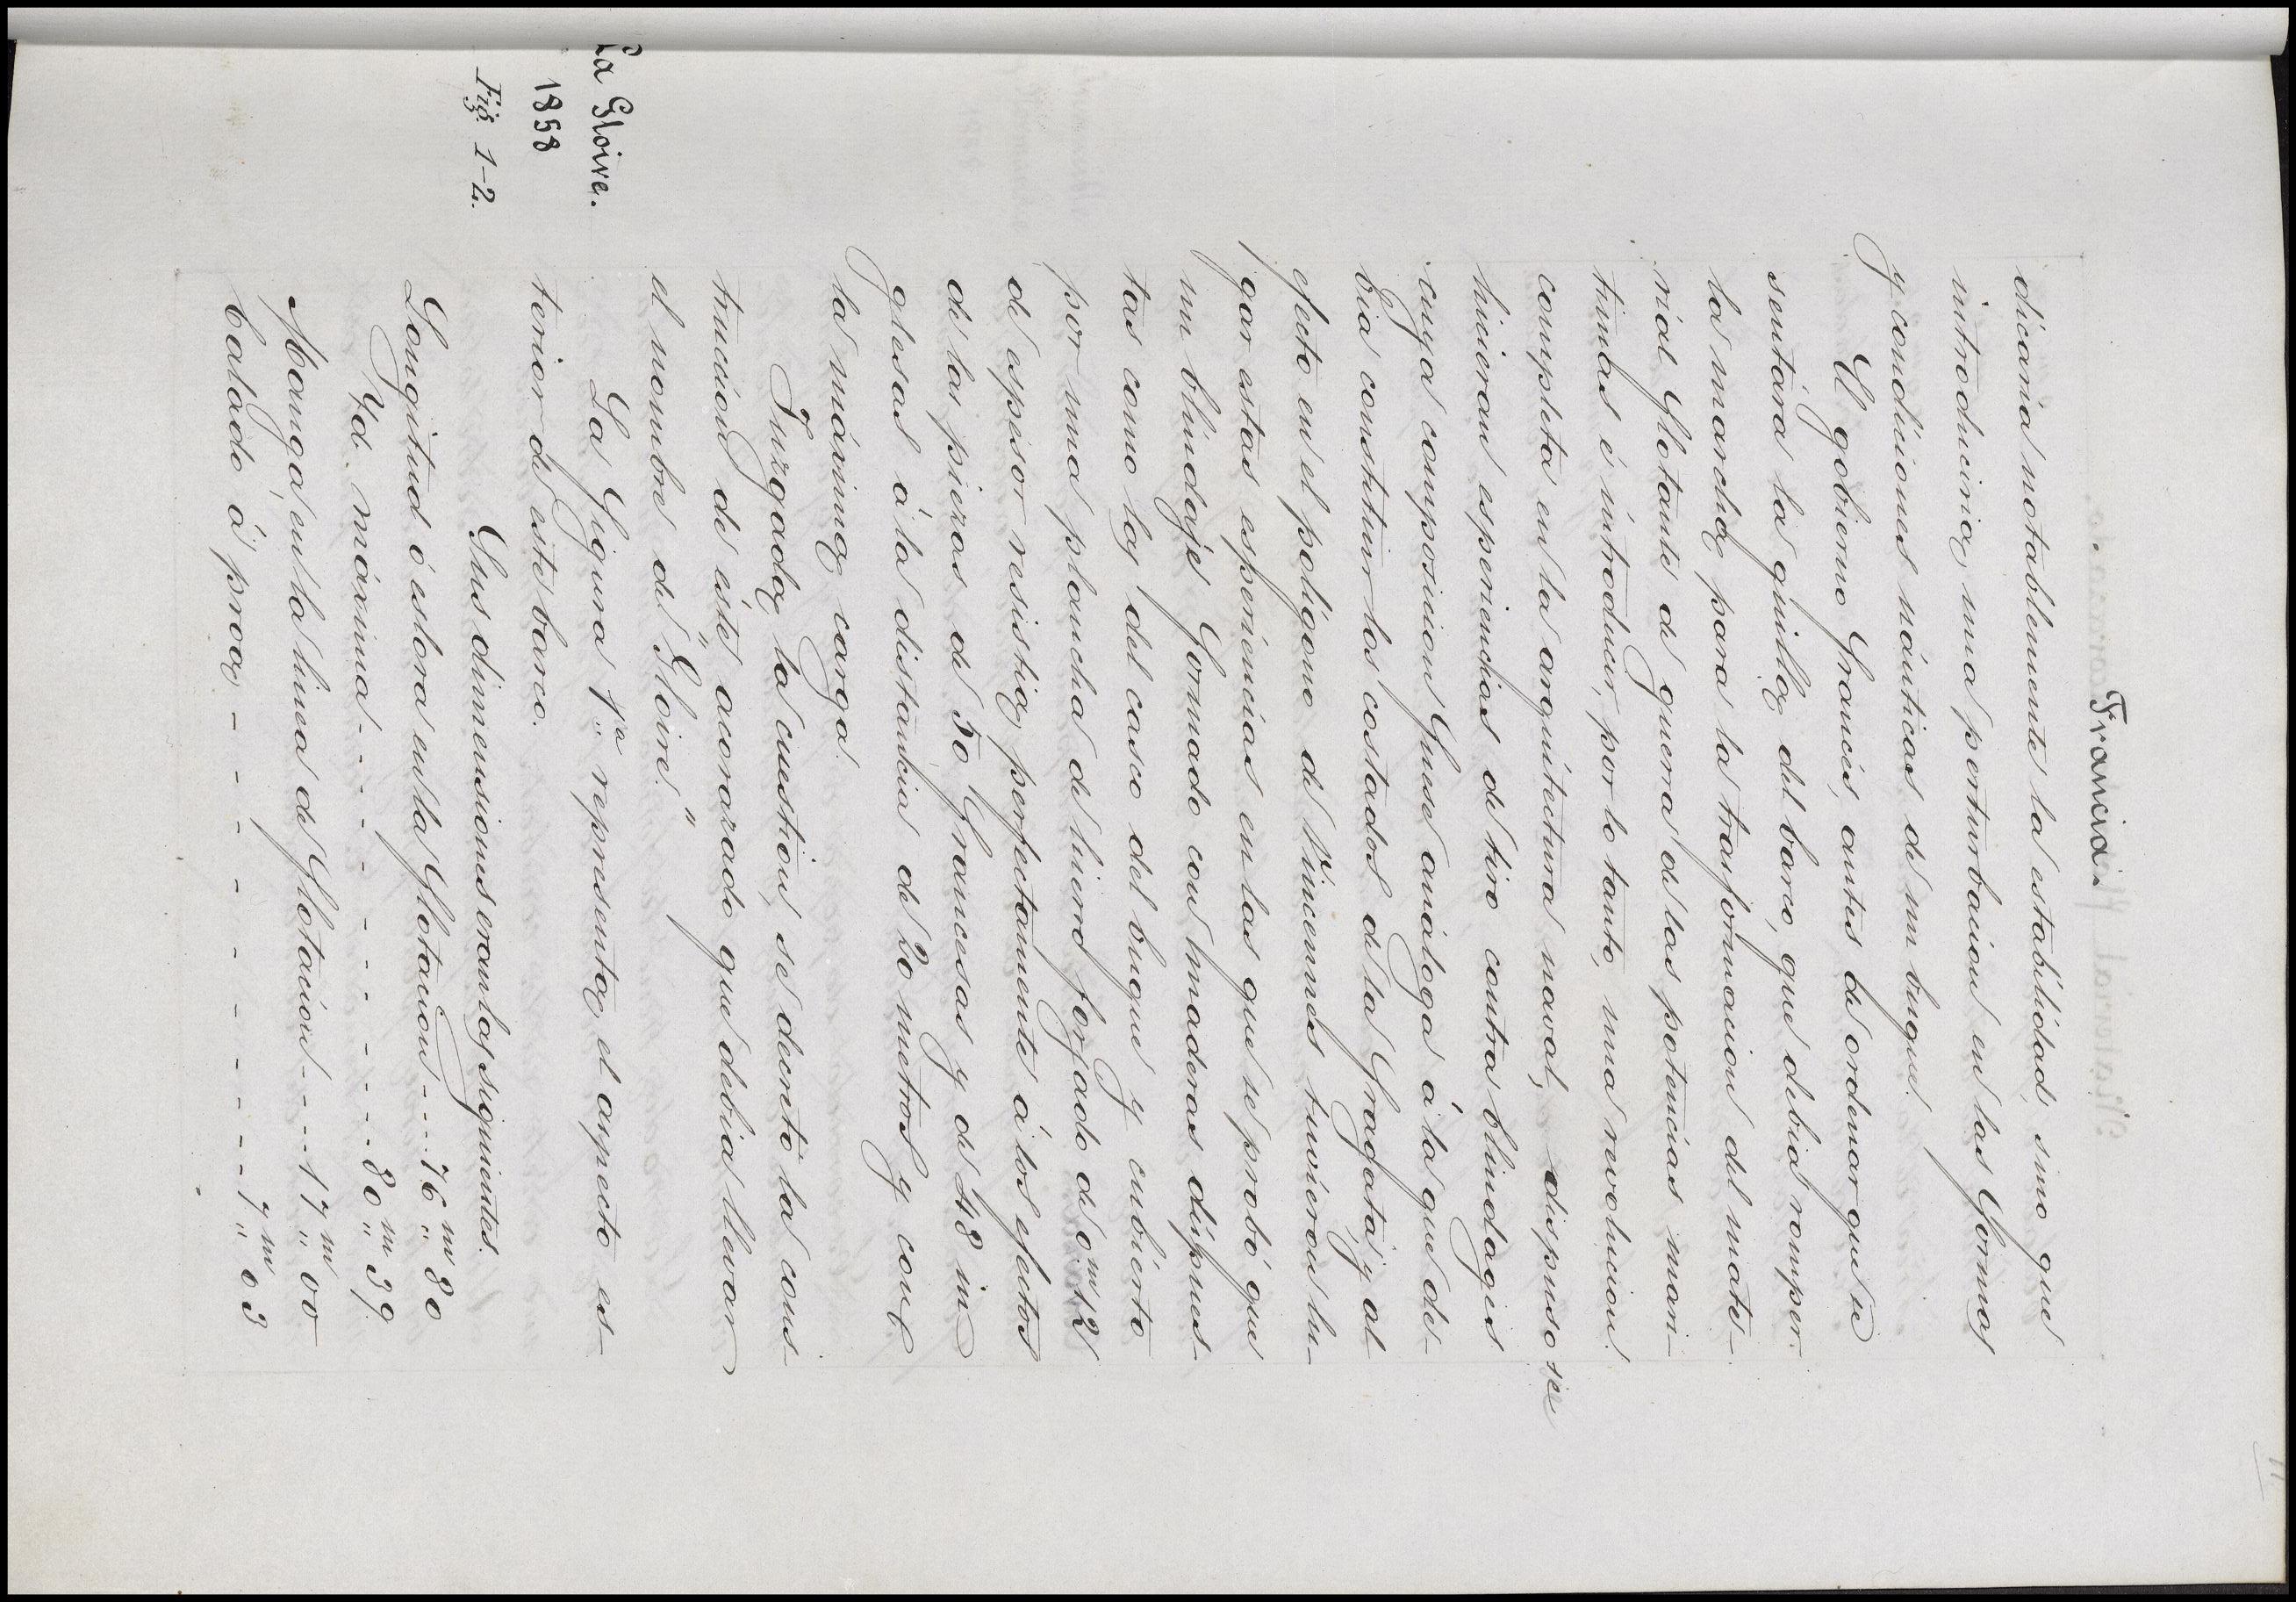 11
Francia.
dicaria notablemente la estabilidad, sino que
introduciria una perturbacion en las formas
y condiciones náuticas de un buque.
El gobierno francés, antes de ordenar que se
sentára la quilla del barco, que debia romper
la marcha para la trasformacion del mate-
rial flotante de guerra de las potencias mari-
timas é introducir, por lo tanto, una revolucion
completa en la arquitectura naval, dispuso se
hicieran esperiencias de tiro contra blindages
cuya composicion fuese análoga á la que de-
bia constituir los costados de la fragata y al
efecto en el polígono de Vincennes tuvieron lu-
gar estas esperiencias en las que se probó que
un blindaje formado con maderas dispues-
tas como las del casco del buque y cubierto
por una plancha de hierro forjado de 0.m12
de espesor resistia perfectamente á los efectos
de las piezas de 50 francesas y de 48 in-
glesas á la distancia de 20 metros y con
la máxima carga.
Juzgada la cuestion, se decretó la cons-
truccion de este acorazado que debia llevar
el nombre de "Gloire."
La Gloire.
1858
Fig. 1-2.
La figura 1.a representa el aspecto es-
terior de este barco.
Sus dimensiones eran las siguientes.
Longitud ó eslora en la flotacion - - - - 76 m 80
Yd. máxima - - - - - - - - - - - - 80 m 39
Manga en la linea de flotacion - - - - 17 m 00
Calado á proa - - - - - - - - - - - 7 m 03